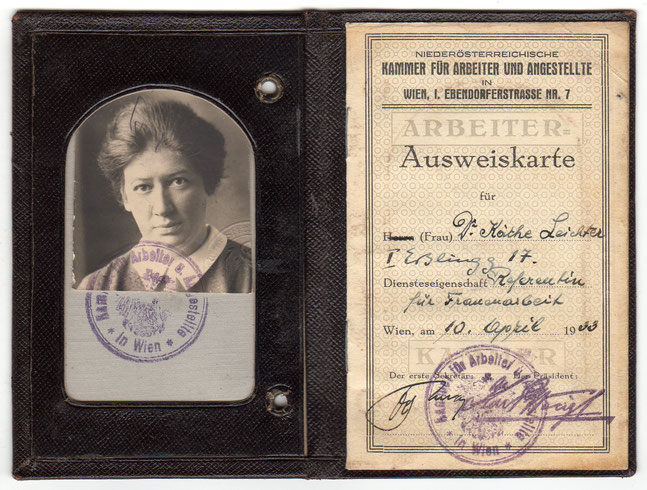 NIEDERÖSTERREICHISCHE
KAMMER FÜR ARBEITER UND ANGESTELLTE
IN
WIEN, I. EBENDORFERSTRASSE NR. 7
ARBEITER=
Ausweiskarte
für
Herrn (Frau) Dr Käthe Leichter
I Eßlingg 17.
Diensteseigenschaft Referentin
für Frauenarbeit
Wien, am 10. April 1933
KAMMER
Der erste Sekretär: Der Präsident:
für Arbeiter u.
* in Wien *
Arbeiter u. Angestellte
* in Wien *